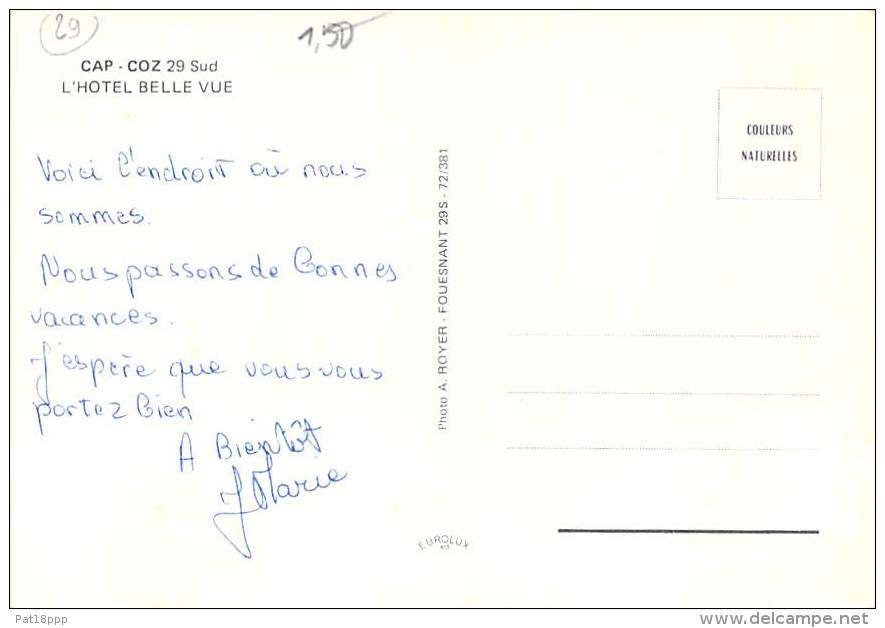 29
1,50
CAP - COZ 29 Sud
L'HOTEL BELLE VUE
Voici l'endroit où nous
sommes.
Nous passons de bonnes
vacances.
J'espère que vous vous
portez bien
A Bientôt
J Marie
Photo A. ROYER - FOUESNANT 29S - 72/381
COULEURS
NATURELLES
EUROLUX
Pat18ppp
delcampe.net